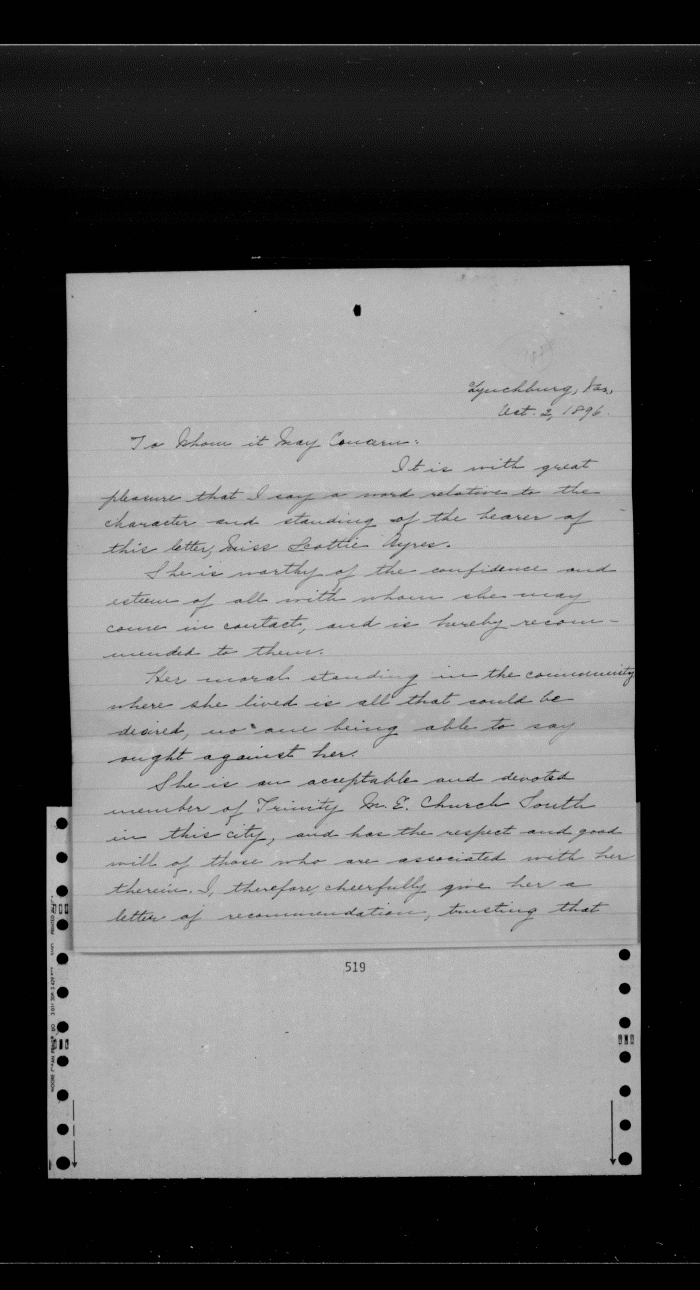 Lynchburg, Va.,
Oct. 2, 1896.
To Whom it May Concern:
It is with great
pleasure that I say a word relative to the
character and standing of the bearer of
this letter, Miss Scottie Ayres.
She is worthy of the confidence and
esteem of all with whom she may
come in contact, and is hereby recom-
mended to them.
Her moral standing in the community
where she lived is all that could be
desired, no one being able to say
ought against her.
She is an acceptable and devoted
member of Trinity M. E. Church South
in this city, and has the respect and good
will of those who are associated with her
therein. I, therefore, cheerfully give her a
letter of recommendation, trusting that
519